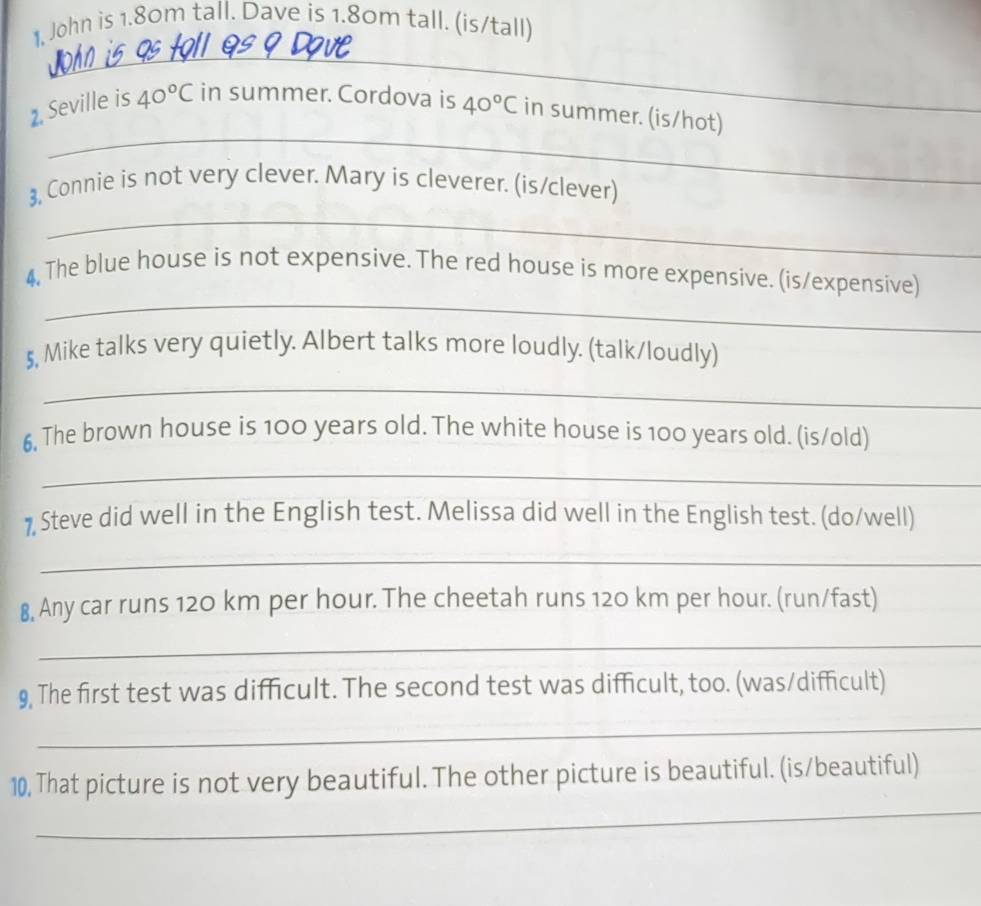 1. John is 1.80m tall. Dave is 1.80m tall. (is/tall)
John is as tall as a Dave
2. Seville is 40°C in summer. Cordova is 40°C in summer. (is/hot)
3. Connie is not very clever. Mary is cleverer. (is/clever)
4. The blue house is not expensive. The red house is more expensive. (is/expensive)
5. Mike talks very quietly. Albert talks more loudly. (talk/loudly)
6. The brown house is 100 years old. The white house is 100 years old. (is/old)
7. Steve did well in the English test. Melissa did well in the English test. (do/well)
8. Any car runs 120 km per hour. The cheetah runs 120 km per hour. (run/fast)
9. The first test was difficult. The second test was difficult, too. (was/difficult)
10. That picture is not very beautiful. The other picture is beautiful. (is/beautiful)